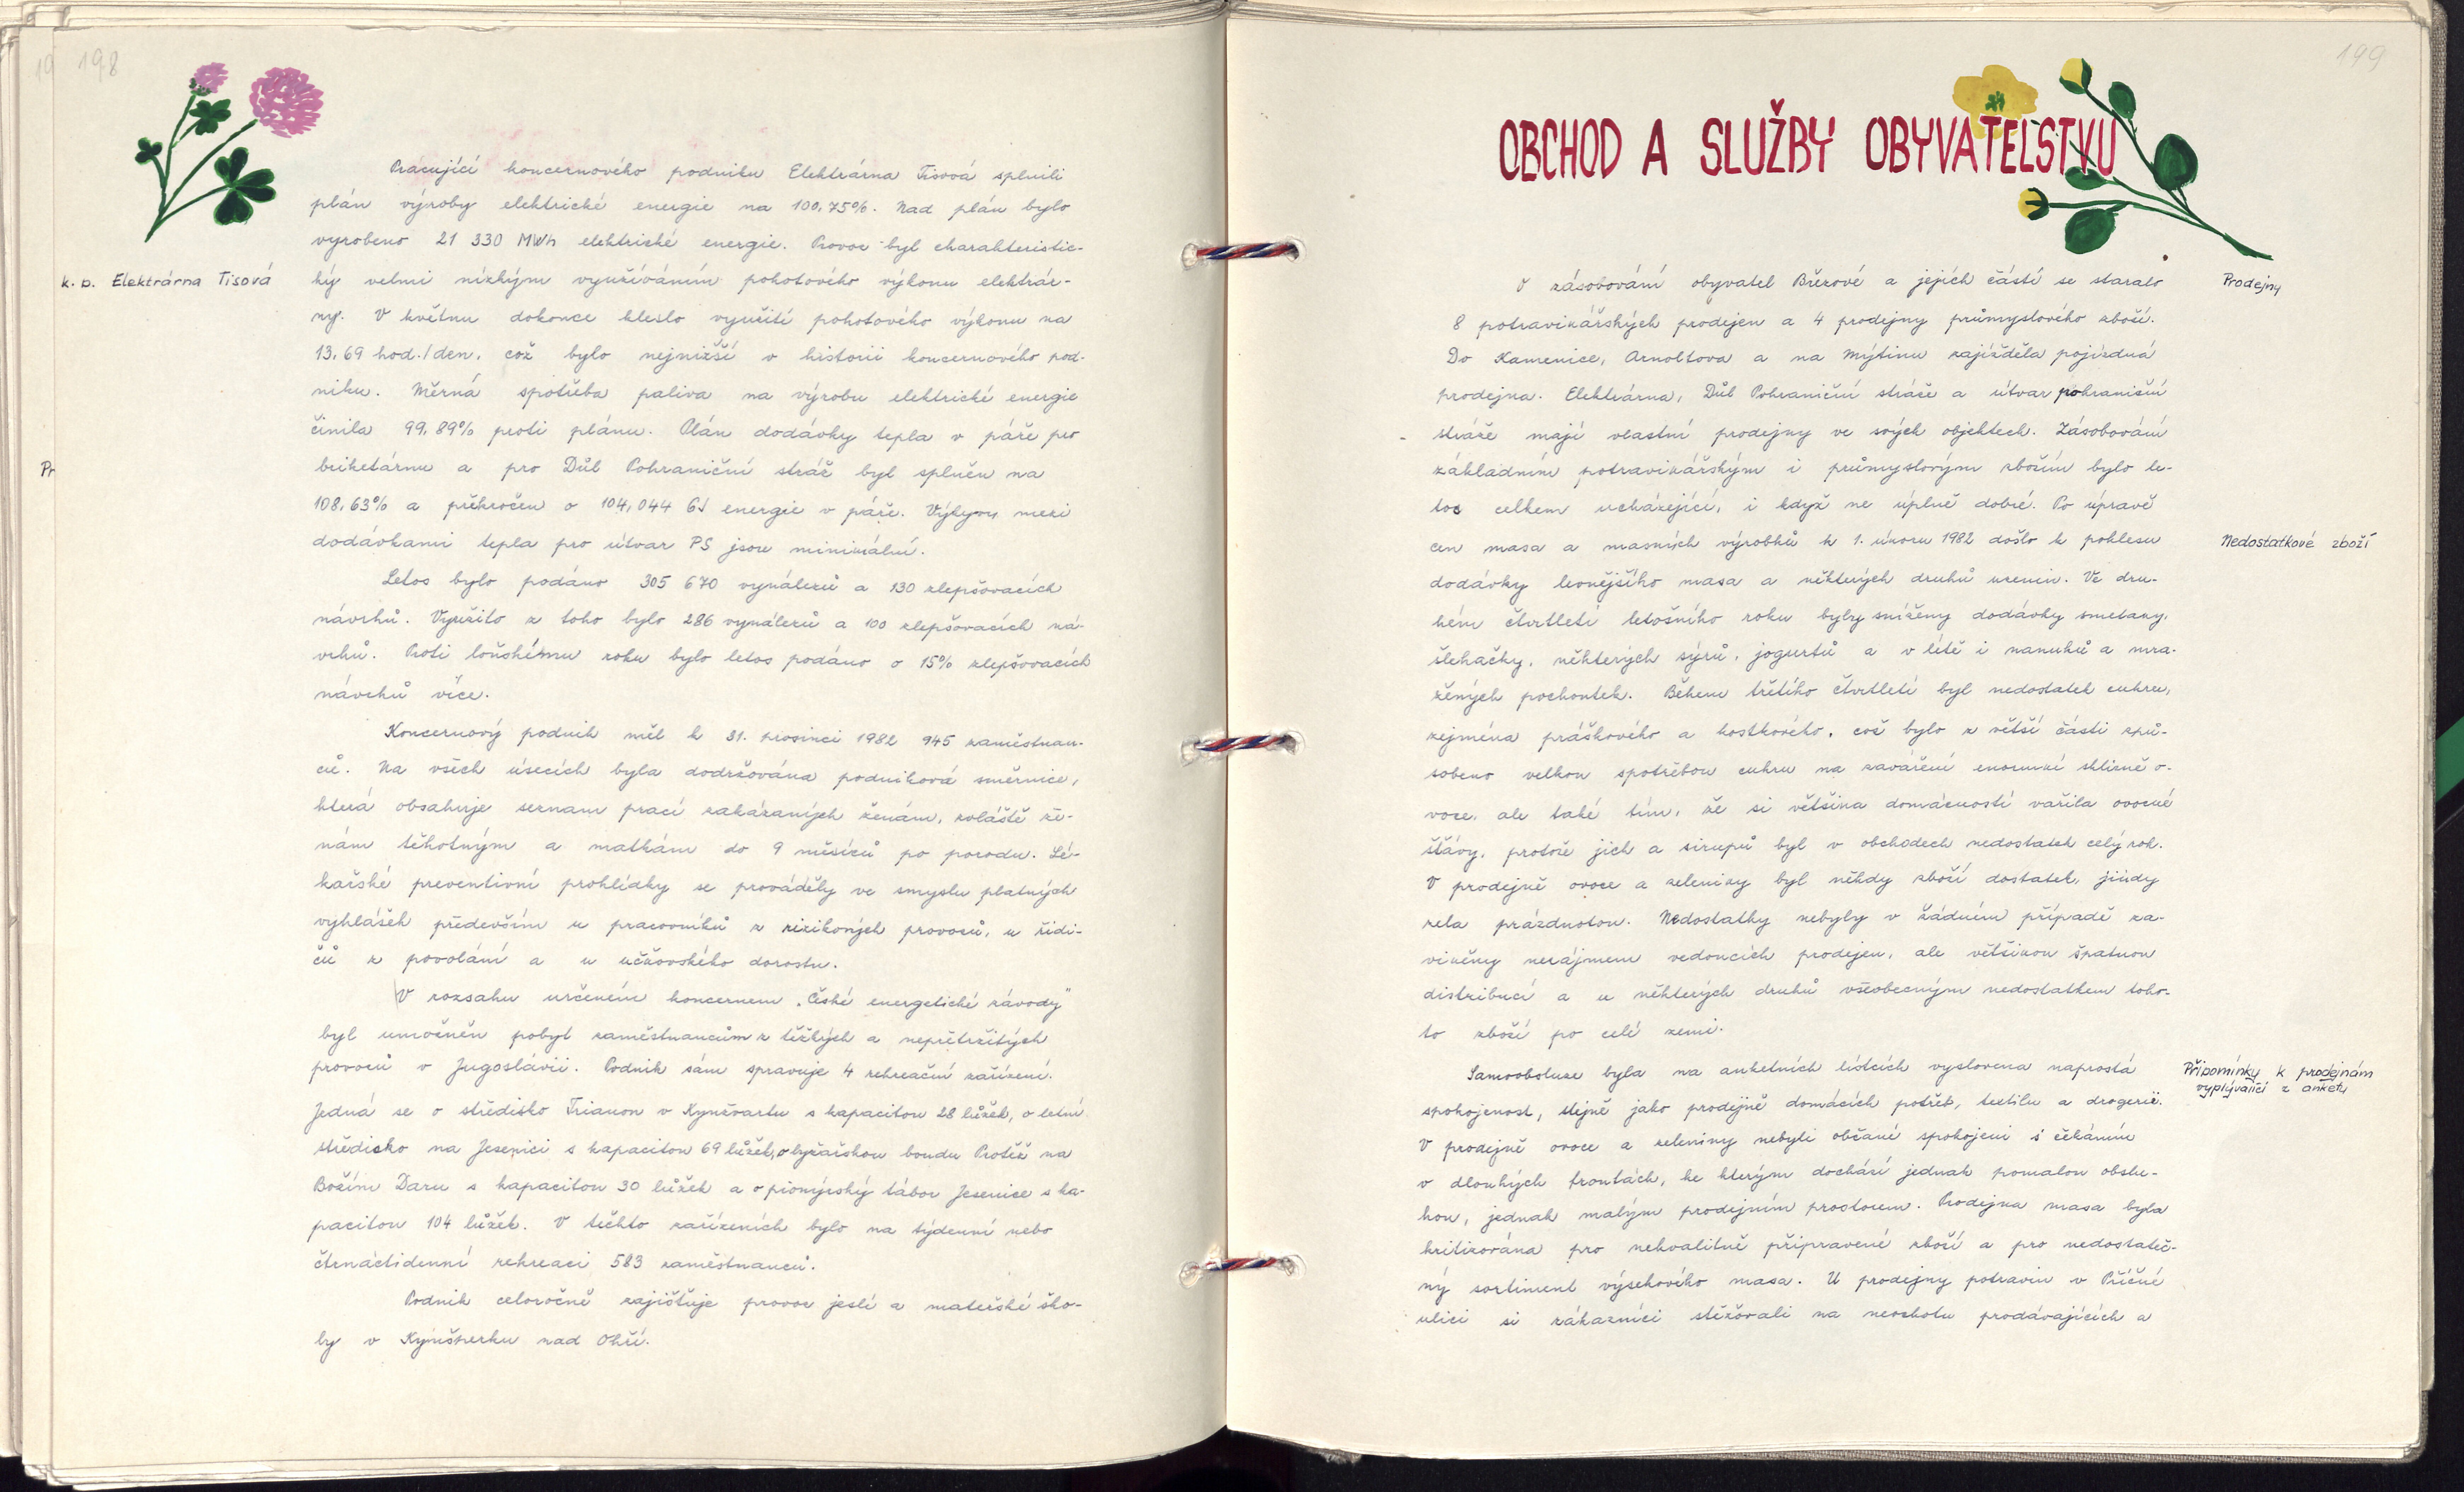 198
Pracující koncernového podniku Elektrárna Tisová splnili
plán výroby elektrické energie na 100,75%. Nad plán bylo
vyrobeno 21 330 MWh elektrické energie. Provoz byl charakteristic-
k. p. Elektrárna Tisová
ký velmi nízkým využíváním pohotového výkonu elektrár-
ny. V květnu dokonce kleslo využití pohotového výkonu na
13,69 hod./den, což bylo nejnižší v historii koncernového pod-
niku. Měrná spotřeba paliva na výrobu elektrické energie
činila 99,89% proti plánu. Plán dodávky tepla v páře pro
Pr
briketárnu a pro Důl Pohraniční stráž byl splněn na
108,63% a překročen o 104,044 GJ energie v páře. Výkyvy mezi
dodávkami tepla pro útvar PS jsou minimální.
Letos bylo podáno 305 670 vynálezů a 130 zlepšovacích
návrhů. Využito z toho bylo 286 vynálezů a 100 zlepšovacích ná-
vrhů. Proti loňskému roku bylo letos podáno o 15% zlepšovacích
návrhů více.
Koncernový podnik měl k 31. prosinci 1982 945 zaměstnan-
ců. Na všech úsecích byla dodržována podniková směrnice,
která obsahuje seznam prací zakázaných ženám, zvláště že-
nám těhotným a matkám do 9 měsíců po porodu. Lé-
kařské preventivní prohlídky se prováděly ve smyslu platných
vyhlášek především u pracovníků z rizikových provozů, u řidi-
čů z povolání a u učňovského dorostu.
V rozsahu určeném koncernem „České energetické závody"
byl umožněn pobyt zaměstnancům z těžkých a nepřetržitých
provozů v Jugoslávii. Podnik sám spravuje 4 rekreační zařízení.
Jedná se o středisko Trianon v Kynžvartu s kapacitou 28 lůžek, o letní
středisko na Jesenici s kapacitou 69 lůžek, o lyžařskou boudu Protěž na
Božím Daru s kapacitou 30 lůžek a o pionýrský tábor Jesenice s ka-
pacitou 104 lůžek. V těchto zařízeních bylo na týdenní nebo
čtrnáctidenní rekreaci 583 zaměstnanců.
Podnik celoročně zajišťuje provoz jeslí a mateřské ško-
ly v Kynšperku nad Ohří.
199
OBCHOD A SLUŽBY OBYVATELSTVU
O zásobování obyvatel Březové a jejích částí se staralo
Prodejny
8 potravinářských prodejen a 4 prodejny průmyslového zboží.
Do Kamenice, Arnoltova a na Mýtinu zajížděla pojízdná
prodejna. Elektrárna, Důl Pohraniční stráže a útvar pohraniční
stráže mají vlastní prodejny ve svých objektech. Zásobování
základním potravinářským i průmyslovým zbožím bylo le-
tos celkem ucházející, i když ne úplně dobré. Po úpravě
cen masa a masných výrobků k 1. únoru 1982 došlo k poklesu
Nedostatkové zboží
dodávky levnějšího masa a některých druhů uzenin. Ve dru-
hém čtvrtletí letošního roku byly sníženy dodávky smetany,
šlehačky, některých sýrů, jogurtů a v létě i nanuků a mra-
žených pochoutek. Během třetího čtvrtletí byl nedostatek cukru,
zejména práškového a kostkového, což bylo z větší části způ-
sobeno velkou spotřebou cukru na zavaření enormní sklizně o-
voce, ale také tím, že si většina domácností vařila ovocné
šťávy, protože jich a sirupů byl v obchodech nedostatek celý rok.
V prodejně ovoce a zeleniny byl někdy zboží dostatek, jindy
zela prázdnotou. Nedostatky nebyly v žádném případě za-
viněny nezájmem vedoucích prodejen, ale většinou špatnou
distribucí a u některých druhů všeobecným nedostatkem toho-
to zboží po celé zemi.
Samoobsluze byla na anketních lístcích vyslovena naprostá
Připomínky k prodejnám
vyplývající z ankety
spokojenost, stejně jako prodejně domácích potřeb, textilu a drogerii.
V prodejně ovoce a zeleniny nebyli občané spokojeni s čekáním
v dlouhých frontách, ke kterým dochází jednak pomalou obslu-
hou, jednak malým prodejním prostorem. Prodejna masa byla
kritizována pro nekvalitně připravené zboží a pro nedostateč-
ný sortiment výsekového masa. U prodejny potravin v Příčné
ulici si zákazníci stěžovali na neochotu prodávajících a